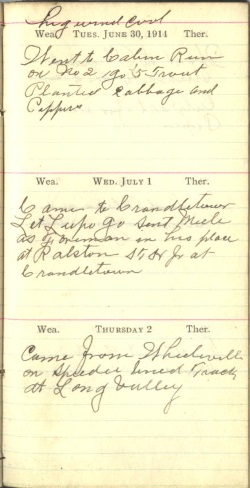 wind cool
Wea. TUES. JUNE 30, 1914 Ther.
Went to Cabin Run
on No 2 go 5 Trout
Planted Cabbage and
Peppers
Wea. WED. JULY 1 Ther.
Came to Grandletown
Let Lupo go sent Mele
as Foreman in his place
at Ralston St & Jr at
Crandletown
Wea. THURSDAY 2 Ther.
Came from Wheelerville
on speeder lined Track
at Long Valley